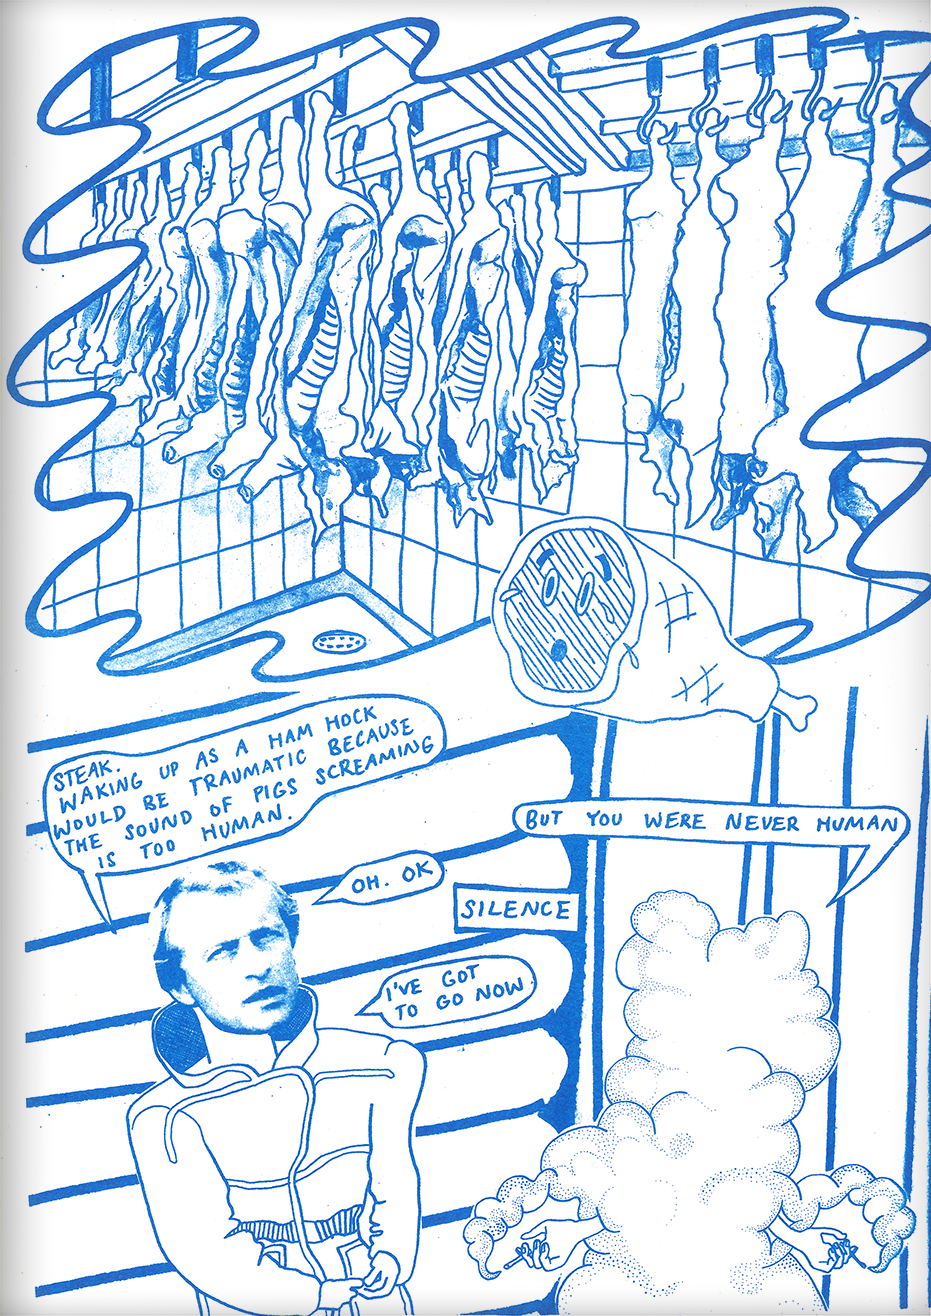 STEAK.
WAKING UP AS A HAM HOCK
WOULD BE TRAUMATIC BECAUSE
THE SOUND OF PIGS SCREAMING
IS TOO HUMAN.
BUT YOU WERE NEVER HUMAN
OH. OK
SILENCE
I'VE GOT
TO GO NOW.